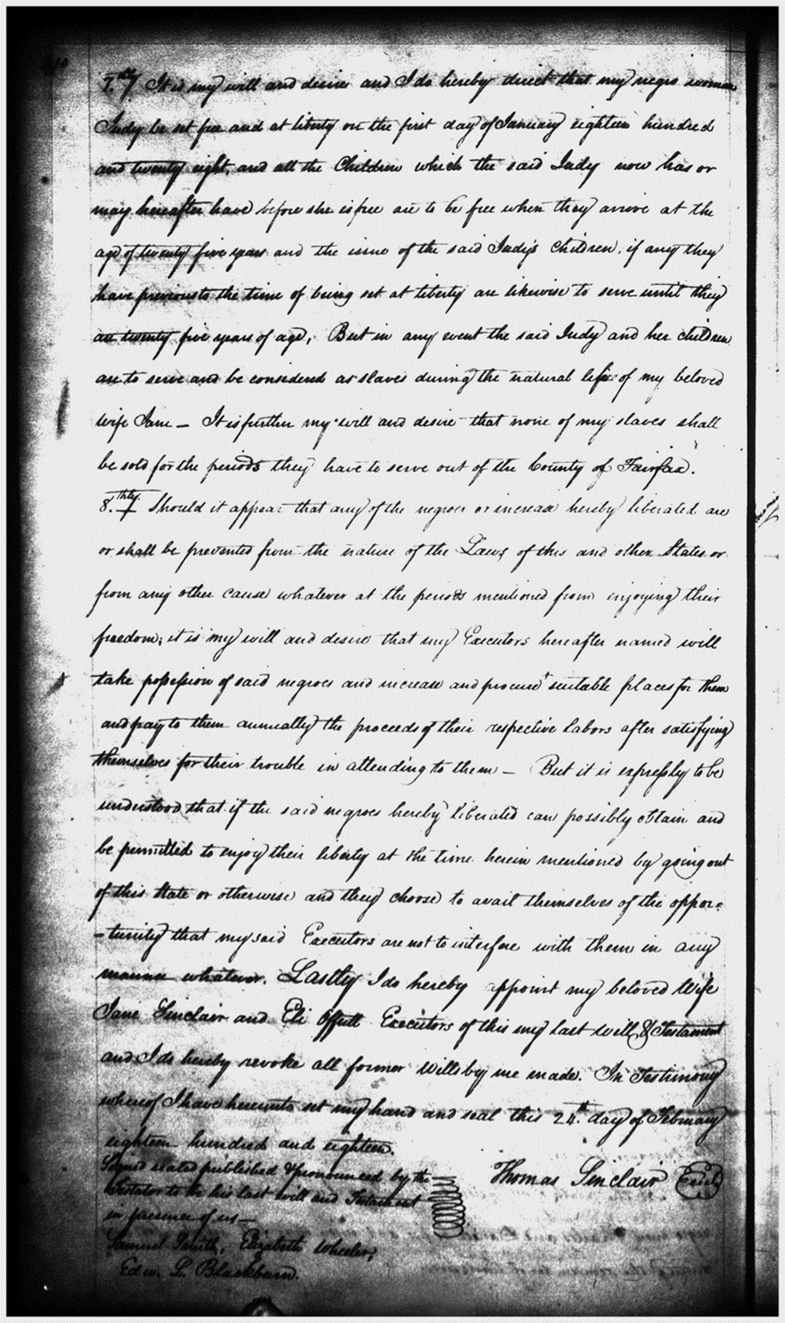 7.thly It is my will and desire and I do hereby direct that my negro woman
Judy be set free and at liberty on the first day of January eighteen hundred
and twenty eight, and all the Children which the said Judy now has or
may hereafter have before she is free are to be free when they arrive at the
age of twenty five years and the issue of the said Judy's Children, if any they
have previous to the time of being set at liberty are likewise to serve until they
are twenty five years of age, But in any event the said Judy and her children
are to serve and be considered as slaves during the natural life of my beloved
wife Jane — It is further my will and desire that none of my slaves shall
be sold for the periods they have to serve out of the County of Fairfax.
8.thly Should it appear that any of the negroes or increase hereby liberated are
or shall be prevented from the nature of the Laws of this and other States or
from any other cause whatever at the periods mentioned from enjoying their
freedom, it is my will and desire that my Executors hereafter named will
take possession of said negroes and increase and procure suitable places for them
and pay to them annually the proceeds of their respective labors after satisfying
themselves for their trouble in attending to them — But it is expressly to be
understood that if the said negroes hereby liberated can possibly obtain and
be permitted to enjoy their liberty at the time herein mentioned by going out
of this State or otherwise and they choose to avail themselves of the oppor-
-tunity that my said Executors are not to interfere with them in any
manner whatever. Lastly I do hereby appoint my beloved Wife
Jane Sinclair and Eli Offutt Executors of this my last will & Testament
and I do hereby revoke all former Wills by me made. In Testimony
whereof I have hereunto set my hand and seal this 24th day of February
eighteen hundred and eighteen.
Signed sealed published & pronounced by the
Testator to be his last will and Testament
in presence of us —
Thomas Sinclair Seal
Samuel Smith, Elizabeth Wheeler,
Edw. L. Blackburn.